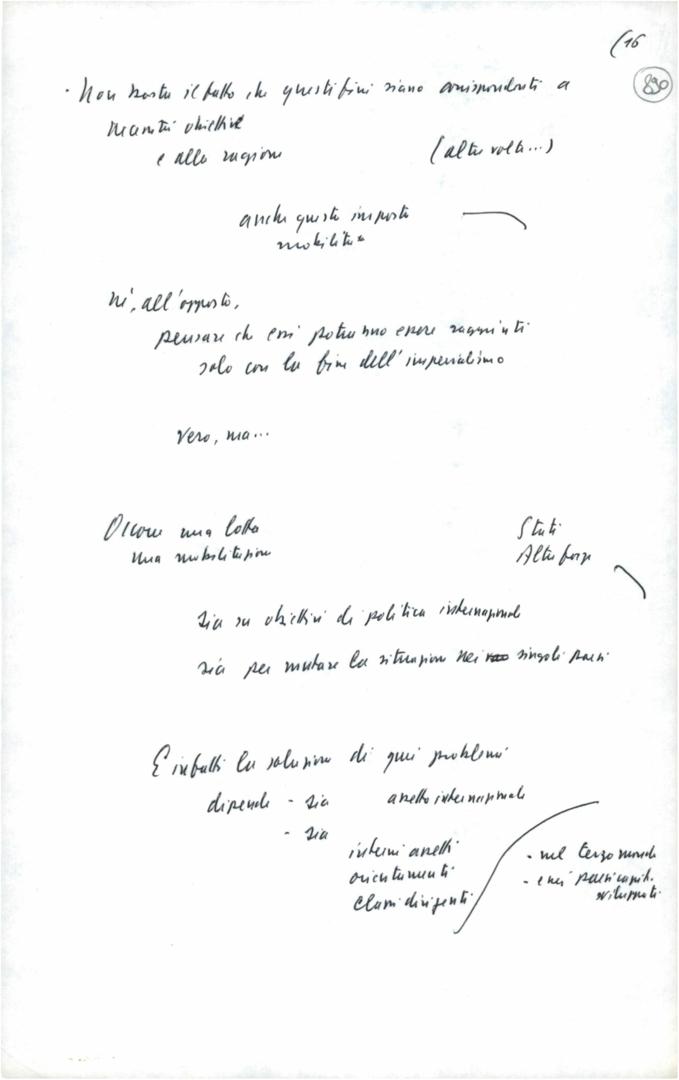 (16
890
· Non basta il fatto che questi fini siano corrispondenti a
necessità obiettive
e alla ragione (altre volte...)
anche questo importa
mobilitaz
Né, all'opposto,
pensare che essi potranno essere raggiunti
solo con la fine dell'imperialismo
Vero, ma...
Occorre una lotta Stati
una mobilitazione Altre forze
sia su obiettivi di politica internazionale
sia per mutare la situazione nei singoli paesi
E infatti la soluzione di quei problemi
dipende - sia assetto internazionale
- sia
interni assetti - nel terzo mondo
orientamenti - e nei paesi capit.
classi dirigenti sviluppati